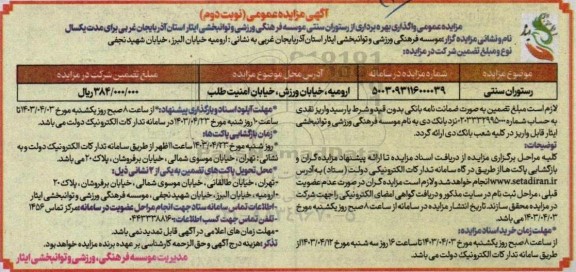 آگهی مزایده عمومی (نوبت دوم)
مزایده عمومی واگذاری بهره برداری از رستوران سنتی موسسه فرهنگی ورزشی و توانبخشی ایثار استان آذربایجان غربی برای مدت یکسال
نام و نشانی مزایده گزار: موسسه فرهنگی ورزشی و توانبخشی ایثار استان آذربایجان غربی به نشانی: ارومیه خیابان البرز، خیابان شهید نجفی
نوع و مبلغ تضمین شرکت در مزایده:
موضوع مزایده شماره مزایده در سامانه آدرس محل موضوع مزایده مبلغ تضمین شرکت در مزایده
رستوران سنتی ۵۰۰۳۰۹۳۱۱۶۰۰۰۰۳۹ ارومیه، خیابان ورزش، خیابان امنیت طلب ۳۸۴/۰۰۰/۰۰۰ ریال
لازم است مبلغ تضمین به صورت ضمانت نامه بانکی بدون قید و شرط یا رسید واریز نقدی
به حساب شماره ۲۰۳۳۳۲۹۹۵۰۰۰ نزد بانک دی به نام موسسه فرهنگی ورزشی و توانبخشی
ایثار قابل واریز در کلیه شعب بانک دی ارائه گردد.
توضیحات:
کلیه مراحل برگزاری مزایده از دریافت اسناد مزایده تا ارائه پیشنهاد مزایده گران و
بازگشایی پاکت ها از طریق درگاه سامانه تدارکات الکترونیکی دولت (ستاد) به آدرس
www.setadiran.ir انجام خواهد شد و لازم است مزایده گران در صورت عدم عضویت
قبلی، مراحل ثبت نام در سایت مذکور و دریافت گواهی امضای الکترونیکی را جهت شرکت
در مزایده محقق سازند. تاریخ انتشار مزایده در سامانه از ساعت ۸ صبح روز یکشنبه مورخ
۱۴۰۳/۰۴/۰۳ می باشد.
*مهلت زمان خرید اسناد مزایده:
از ساعت ۸ صبح روز یکشنبه مورخ ۱۴۰۳/۰۴/۰۳ تا ساعت ۱۶ روز سه شنبه مورخ ۱۴۰۳/۰۴/۱۲ از
طریق سامانه تدارکات الکترونیک دولت می باشد.
*مهلت آپلود اسناد و بارگذاری پیشنهاد: *از ساعت ۸ صبح روز یکشنبه مورخ ۱۴۰۳/۰۴/۰۳ تا
ساعت ۱۰ روز شنبه مورخ ۱۴۰۳/۰۴/۲۳ در سامانه تدارکات الکترونیک دولت می باشد.
*زمان بازگشایی پاکت ها:
*روز شنبه مورخ ۱۴۰۳/۰۴/۲۳ ساعت ۱۱ ظهر از طریق سامانه تدارکات الکترونیک دولت و به
نشانی: تهران، خیابان موسوی شمالی، خیابان برفروشان، پلاک ۲۰ می باشد.
*محل تحویل پاکت های تضمین به یکی از ۲ نشانی ذیل:
-تهران، خیابان طالقانی، خیابان موسوی شمالی، خیابان برفروشان، پلاک ۲۰
-ارومیه، خیابان البرز، خیابان شهید نجفی، موسسه فرهنگی، ورزشی و توانبخشی ایثار
-اطلاعات تماس سامانه ستاد جهت انجام مراحل عضویت در سامانه: مرکز تماس ۱۴۵۶
-تلفن تماس جهت کسب اطلاعات: ۰۴۴۳۳۳۸۸۱۴۰
-مهلت زمان های اعلامی در آگهی قابل تمدید نمی باشد.
تذکر: هزینه درج آگهی و حق الزحمه کارشناسی بر عهده برنده مزایده خواهد بود.
مدیریت موسسه فرهنگی، ورزشی و توانبخشی ایثار